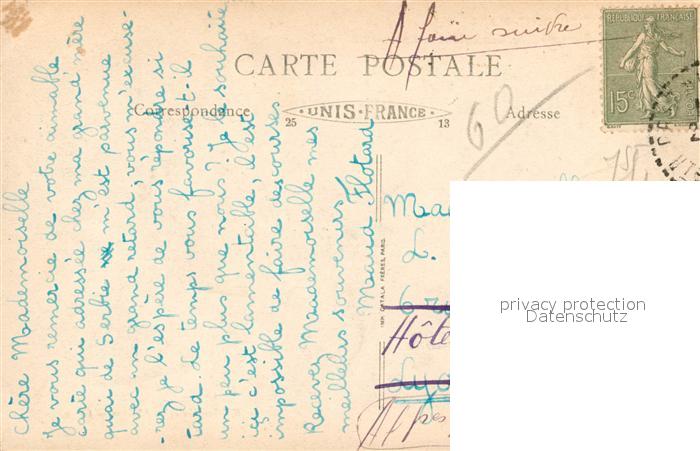 A faire suivre
RÉPUBLIQUE FRANÇAISE
15c
CARTE POSTALE
Correspondance
UNIS-FRANCE
Adresse
25
13
60
Chère Mademoiselle
Je vous remercie de votre aimable
carte qui adressée chez ma grand mère
quai de Serbie m'est parvenue
avec un grand retard, vous m'excuse-
rez je l'espère de vous répondre si
tard. Le temps vous favorise-t-il
un peu plus que nous? Je le souhaite
ici c'est lamentable, il est
impossible de faire des courses
Recevez Mademoiselle mes
meilleurs souvenirs
Maud Flotard
IMP. CATALA FRÈRES, PARIS
L.
Hôte
Alpes
privacy protection
Datenschutz